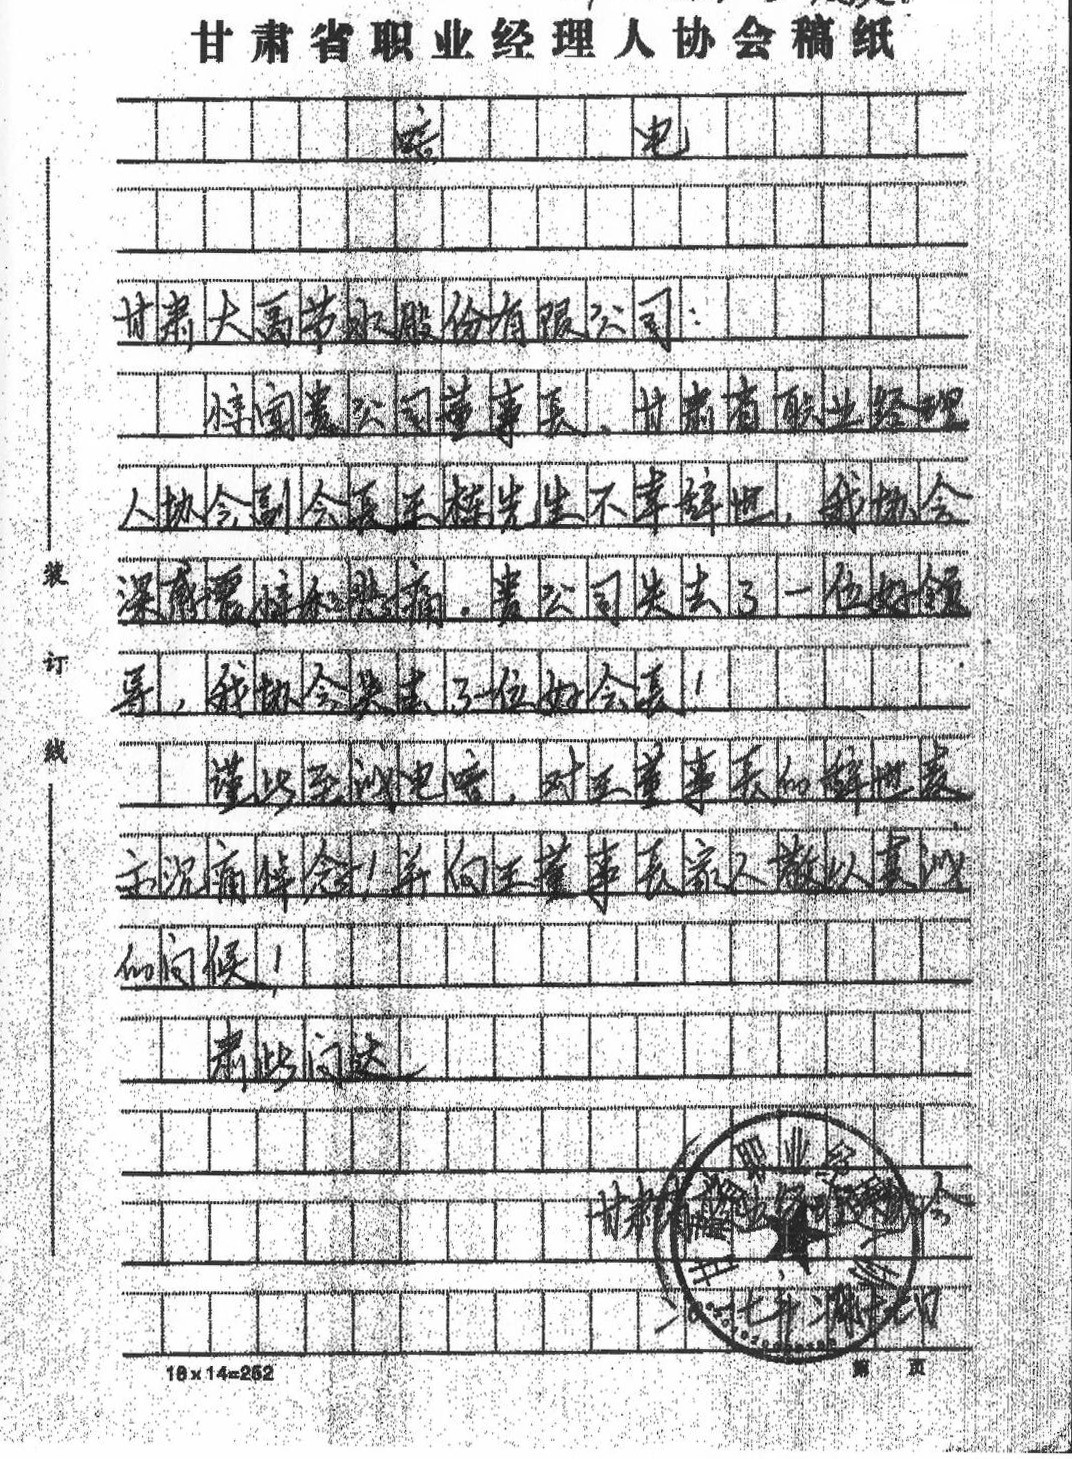 甘肃省职业经理人协会稿纸
唁电
甘肃大禹节水股份有限公司：
悼闻贵公司董事长、甘肃省职业经理
人协会副会长王栋先生不幸辞世，我协会
深感震惊和悲痛。贵公司失去了一位好领
导，我协会失去了一位好会长！
谨此至诚电唁，对王董事长的辞世表
示沉痛悼念！并向王董事长家人致以真诚
的问候！
肃此问达
甘肃省职业经理人协会
二〇一七年二月十七日
装
订
线
18×14=252
第 页